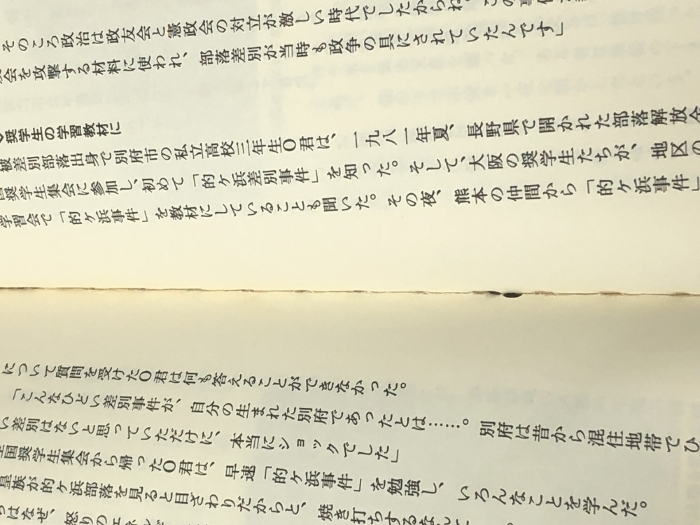 そのころ政治は政友会と憲政会の対立が激しい時代でしたからね。この事
会を攻撃する材料に使われ、部落差別が当時も政争の具にされていたんです」
奨学生の学習教材に
被差別部落出身で別府市の私立高校三年生O君は、一九八一年夏、長野県で開かれた部落解放全
国奨学生集会に参加し、初めて「的ケ浜差別事件」を知った。そして、大阪の奨学生たちが、地区の
学習会で「的ケ浜事件」を教材にしていることも聞いた。その夜、熊本の仲間から「的ケ浜事件」
について質問を受けたO君は何も答えることができなかった。
「こんなひどい差別事件が、自分の生まれた別府であったとは……。別府は昔から混住地帯でひ
い差別はないと思っていただけに、本当にショックでした」
全国奨学生集会から帰ったO君は、早速「的ケ浜事件」を勉強し、いろんなことを学んだ。
皇族が的ケ浜部落を見ると目ざわりだからと、焼き打ちするなんて
はなぜ、怒りのエネル